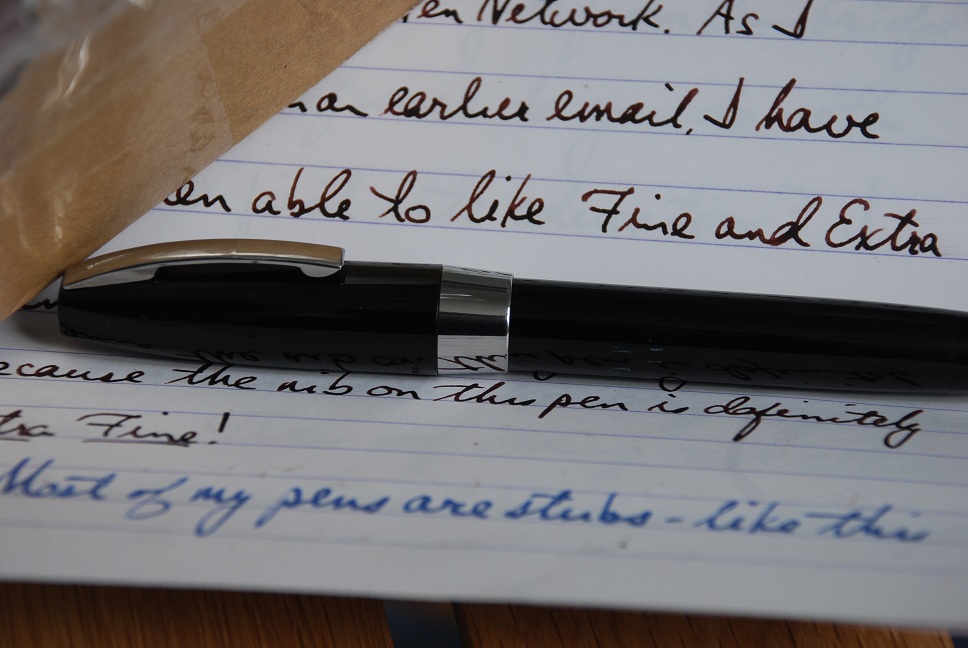 en Network. As I
an earlier email, I have
en able to like Fine and Extra
ecause the nib on this pen is definitely
tra Fine!
Most of my pens are stubs - like this